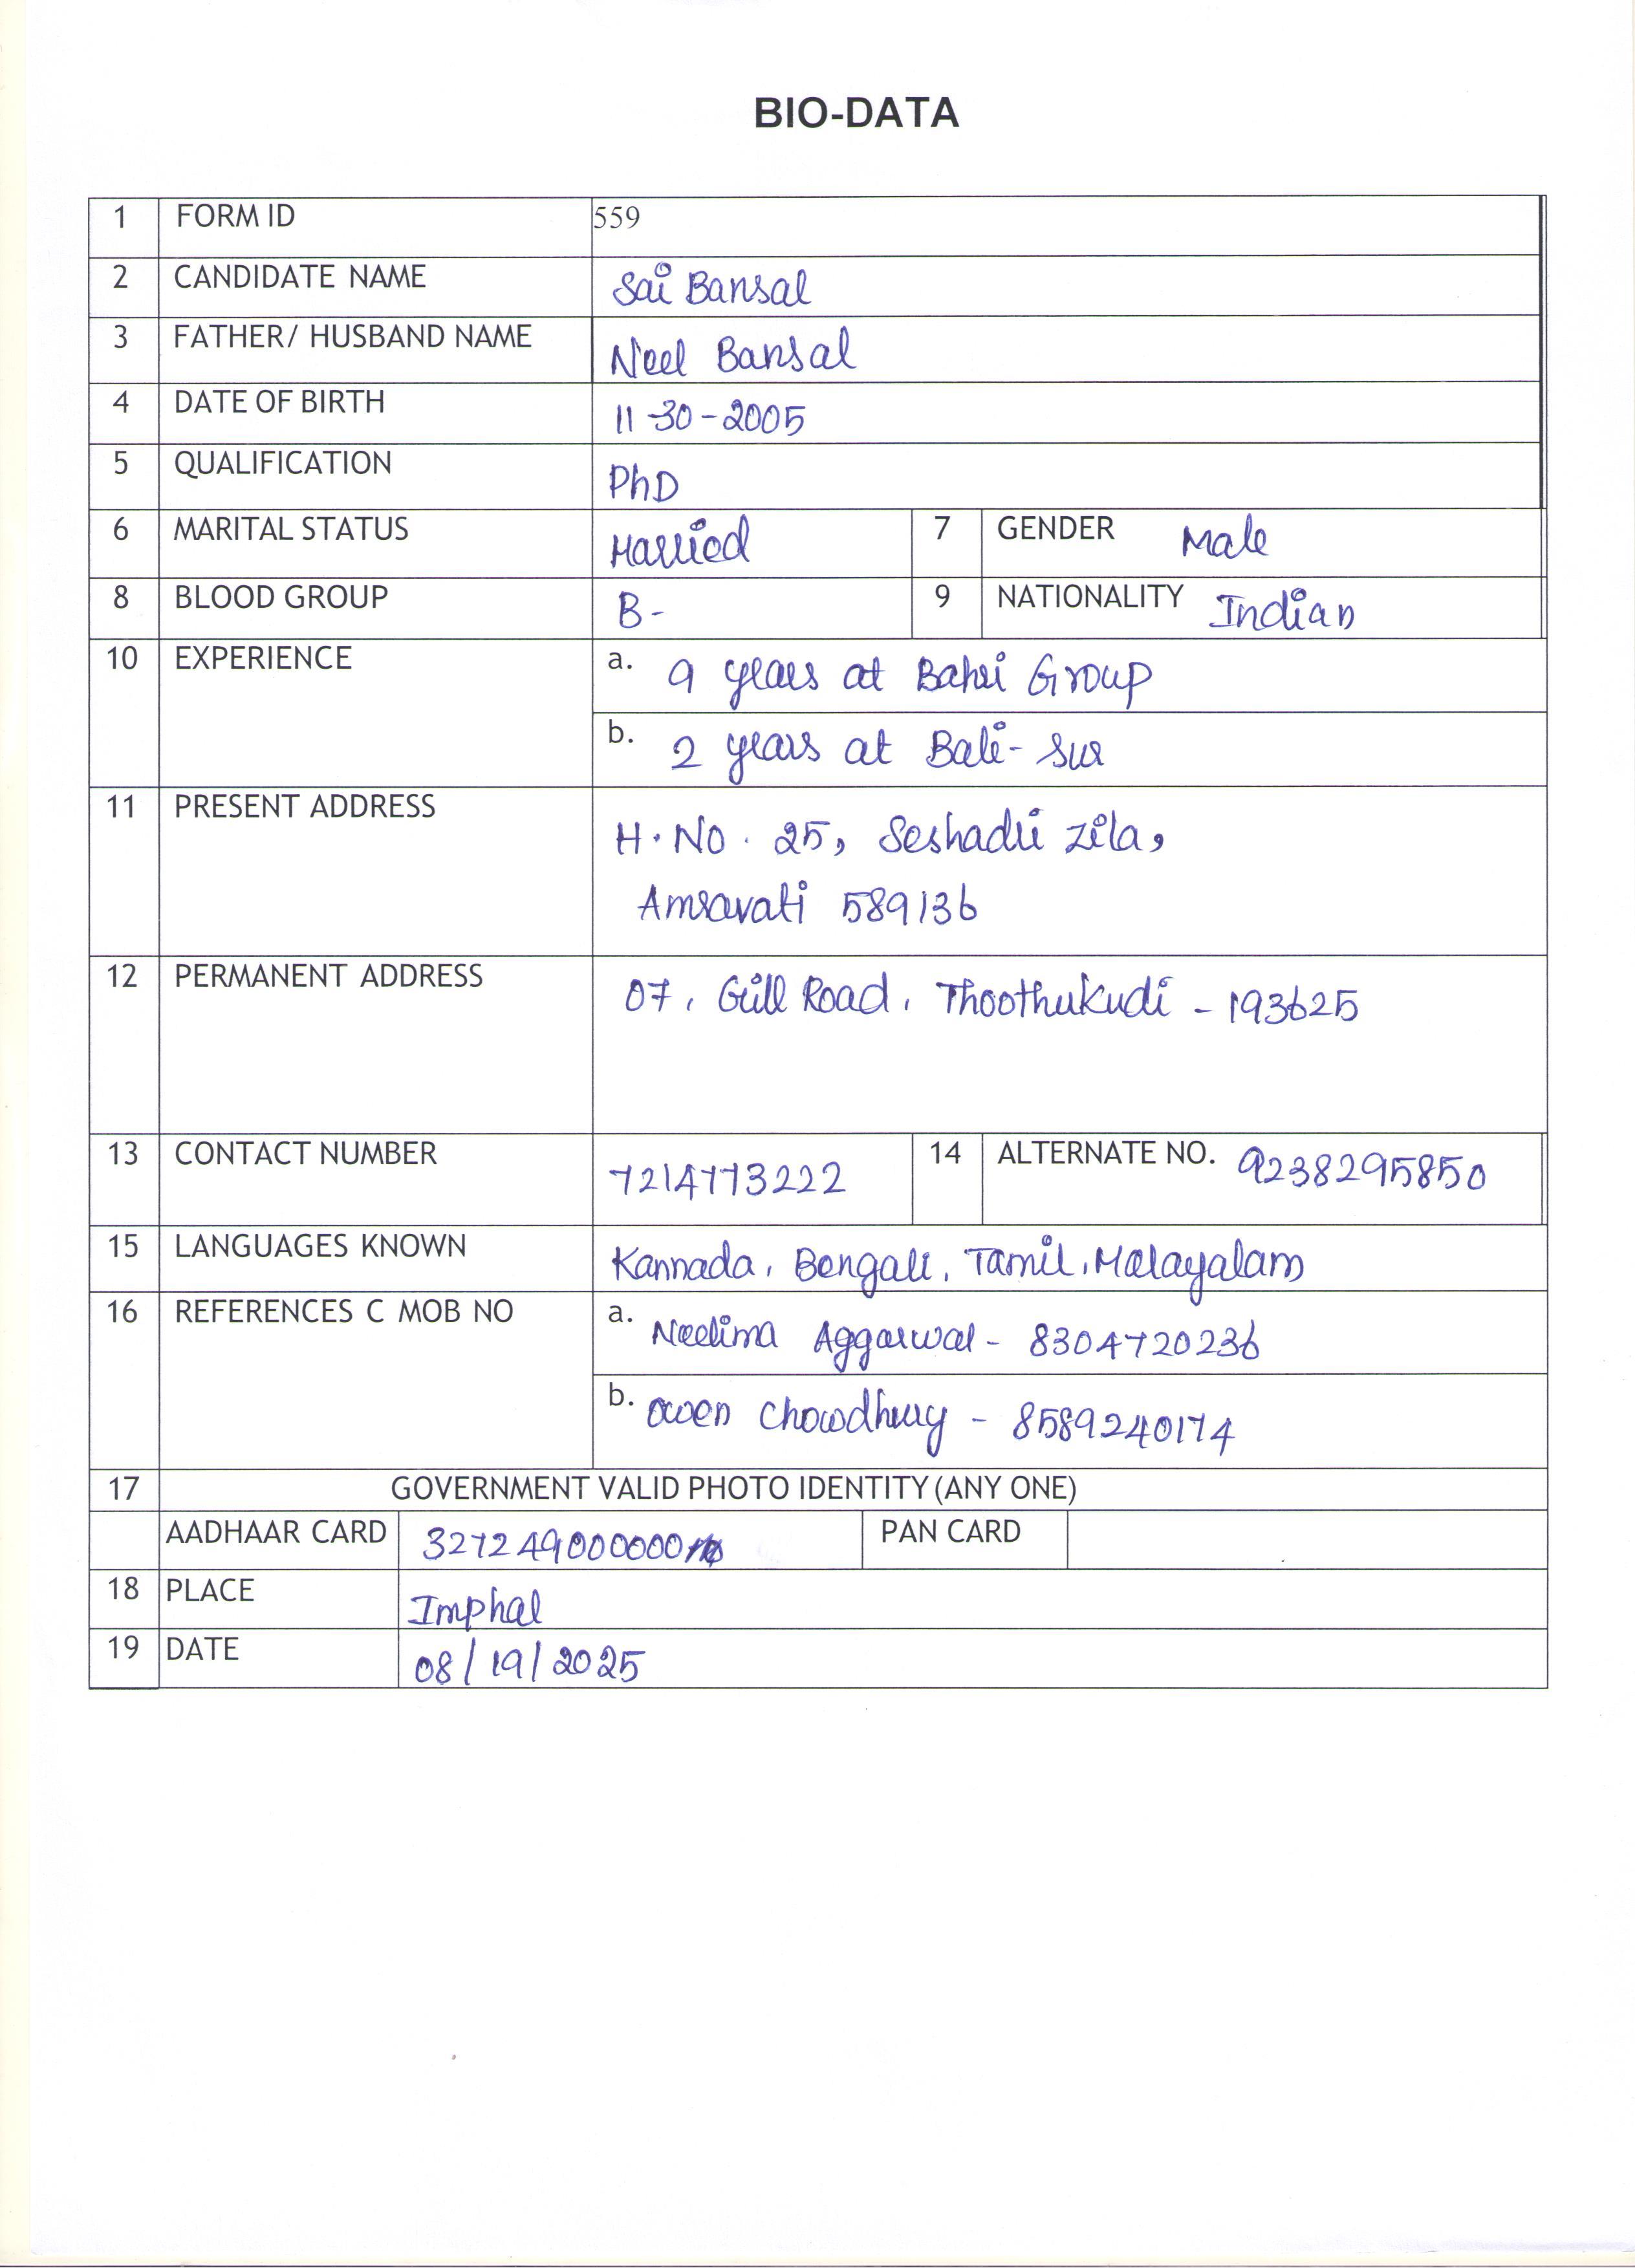 BIO-DATA
1 FORM ID 559
2 CANDIDATE NAME Sai Bansal
3 FATHER/ HUSBAND NAME Neel Bansal
4 DATE OF BIRTH 11-30-2005
5 QUALIFICATION PhD
6 MARITAL STATUS Married 7 GENDER Male
8 BLOOD GROUP B- 9 NATIONALITY Indian
10 EXPERIENCE a. 9 years at Bahri Group
b. 2 years at Bali-Sur
11 PRESENT ADDRESS H.No. 25, Seshadri Zila,
Amravati 589136
12 PERMANENT ADDRESS 07, Gill Road, Thoothukudi - 193625
13 CONTACT NUMBER 7214773222 14 ALTERNATE NO. 9238295850
15 LANGUAGES KNOWN Kannada, Bengali, Tamil, Malayalam
16 REFERENCES C MOB NO a. Neelima Aggarwal - 8304720236
b. Owen Chowdhury - 8589240174
17 GOVERNMENT VALID PHOTO IDENTITY (ANY ONE)
AADHAAR CARD 327249000000 PAN CARD
18 PLACE Imphal
19 DATE 08/19/2025